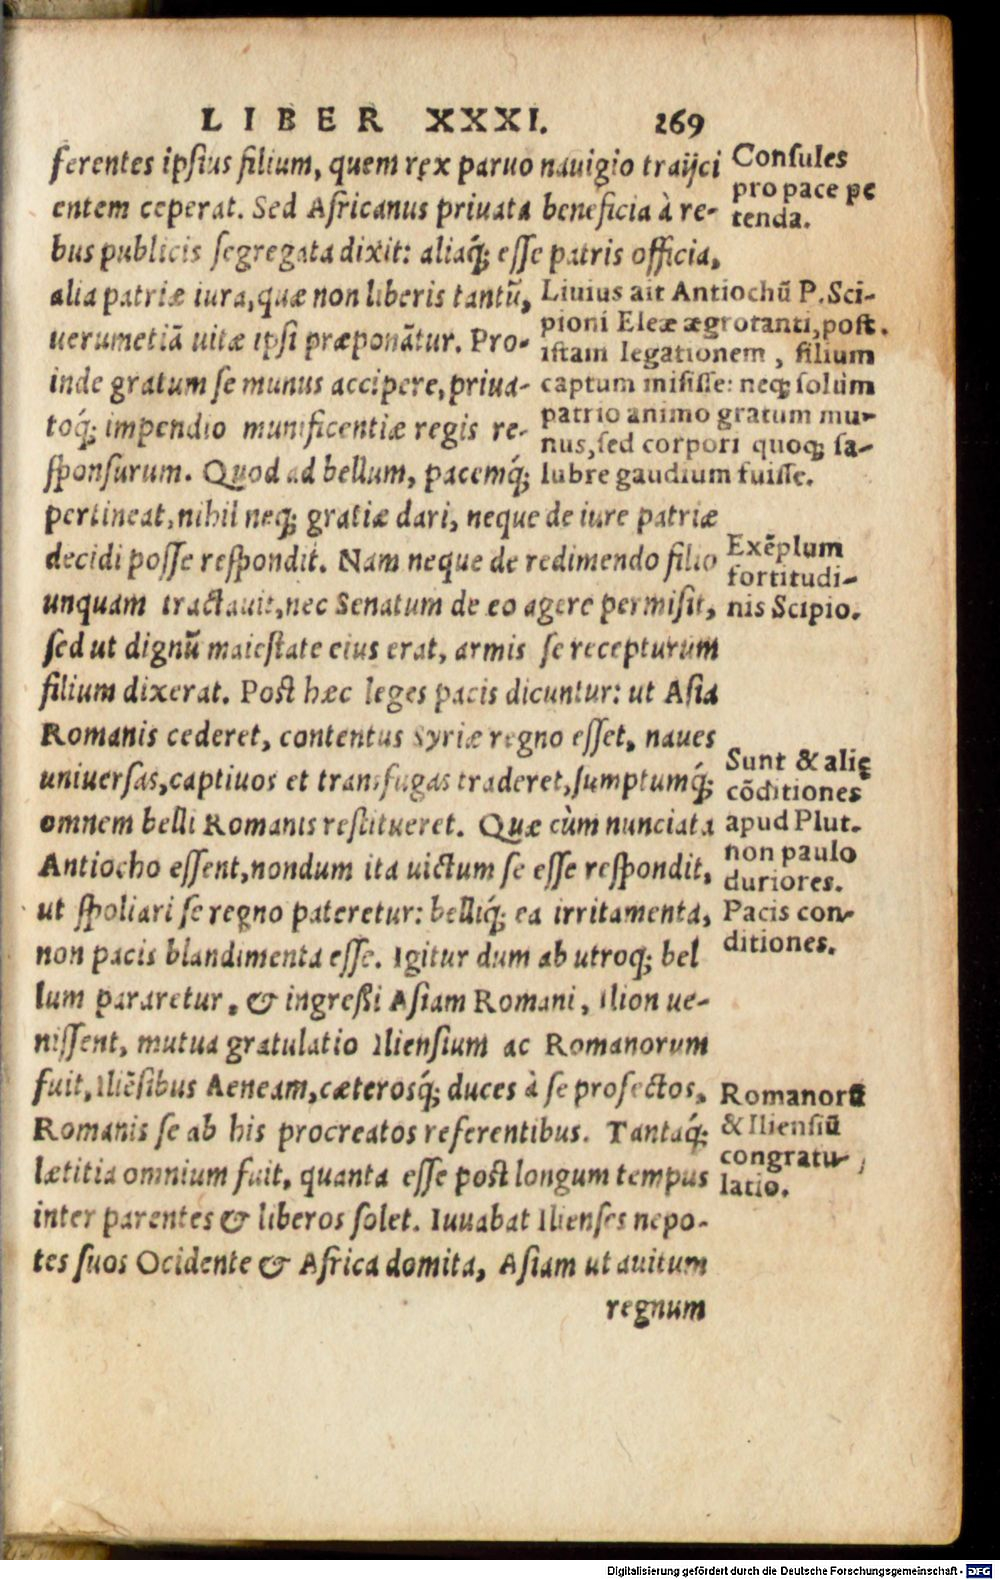 LIBER XXXI. 269
ferentes ipsius filium, quem rex paruo nauigio traijci
entem ceperat. Sed Africanus priuata beneficia à re-
bus publicis segregata dixit: aliaq́; esse patris officia,
alia patriæ iura, quæ non liberis tantũ,
uerumetiã uitæ ipsi præponãtur. Pro-
inde gratum se munus accipere, priua-
toq́; impendio munificentiæ regis re-
sponsurum. Quod ad bellum, pacemq́;
pertineat, nihil neq; gratiæ dari, neque de iure patriæ
decidi posse respondit. Nam neque de redimendo filio
unquam tractauit, nec Senatum de eo agere permisit,
sed ut dignũ maiestate eius erat, armis se recepturum
filium dixerat. Post hæc leges pacis dicuntur: ut Asia
Romanis cederet, contentus Syriæ regno esset, naues
uniuersas, captiuos et transfugas traderet, sumptumq́;
omnem belli Romanis restitueret. Quæ cùm nunciata
Antiocho essent, nondum ita uictum se esse respondit,
ut spoliari se regno pateretur: belliq́; ea irritamenta,
non pacis blandimenta esse. Igitur dum ab utroq; bel
lum pararetur, & ingressi Asiam Romani, Ilion ue-
nissent, mutua gratulatio Iliensium ac Romanorum
fuit, Iliẽsibus Aeneam, cæterosq́; duces à se profectos,
Romanis se ab his procreatos referentibus. Tantaq́;
lætitia omnium fuit, quanta esse post longum tempus
inter parentes & liberos solet. Iuuabat Ilienses nepo-
tes suos Ocidente & Africa domita, Asiam ut auitum
regnum
Consules
pro pace pe
tenda.
Liuius ait Antiochũ P. Sci-
pioni Eleæ ægrotanti, post
istam legationem, filium
captum misisse: neq; solùm
patrio animo gratum mu-
nus, sed corpori quoq; sa-
lubre gaudium fuisse.
Exẽplum
fortitudi-
nis Scipio.
Sunt & alię
cõditiones
apud Plut.
non paulo
duriores.
Pacis con-
ditiones.
Romanorũ
& Iliensiũ
congratu-
latio.
Digitalisierung gefördert durch die Deutsche Forschungsgemeinschaft - DFG